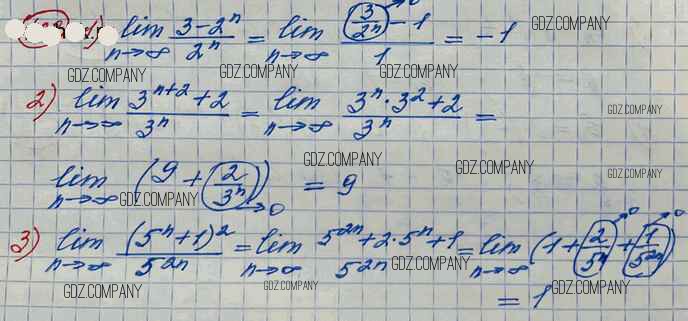 1) lim n→∞ (3-2ⁿ)/2ⁿ = lim n→∞ ((3/2ⁿ)→0 - 1)/1 = -1 GDZ.COMPANY
GDZ.COMPANY GDZ.COMPANY GDZ.COMPANY
2) lim n→∞ (3ⁿ⁺² + 2)/3ⁿ = lim n→∞ (3ⁿ · 3² + 2)/3ⁿ = GDZ.COMPANY
GDZ.COMPANY GDZ.COMPANY
lim n→∞ (9 + (2/3ⁿ)→0) = 9
GDZ.COMPANY
3) lim n→∞ (5ⁿ+1)²/5²ⁿ = lim n→∞ (5²ⁿ + 2·5ⁿ + 1)/5²ⁿ = lim n→∞ (1 + (2/5ⁿ)→0 + (1/5²ⁿ)→0)
GDZ.COMPANY
= 1
GDZ.COMPANY GDZ.COMPANY GDZ.COMPANY